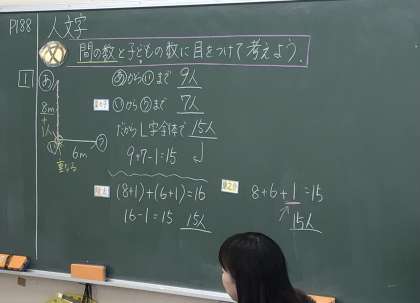 P188
人文字
間の数と子どもの数に目をつけて考えよう。
1
あ
8m
+
1人
い
6m
う
重なる
あからいまで 9人
いからうまで 7人
だからL字全体で 15人
9+7-1=15
(8+1)+(6+1)=16
16-1=15 15人
8+6+1=15
15人